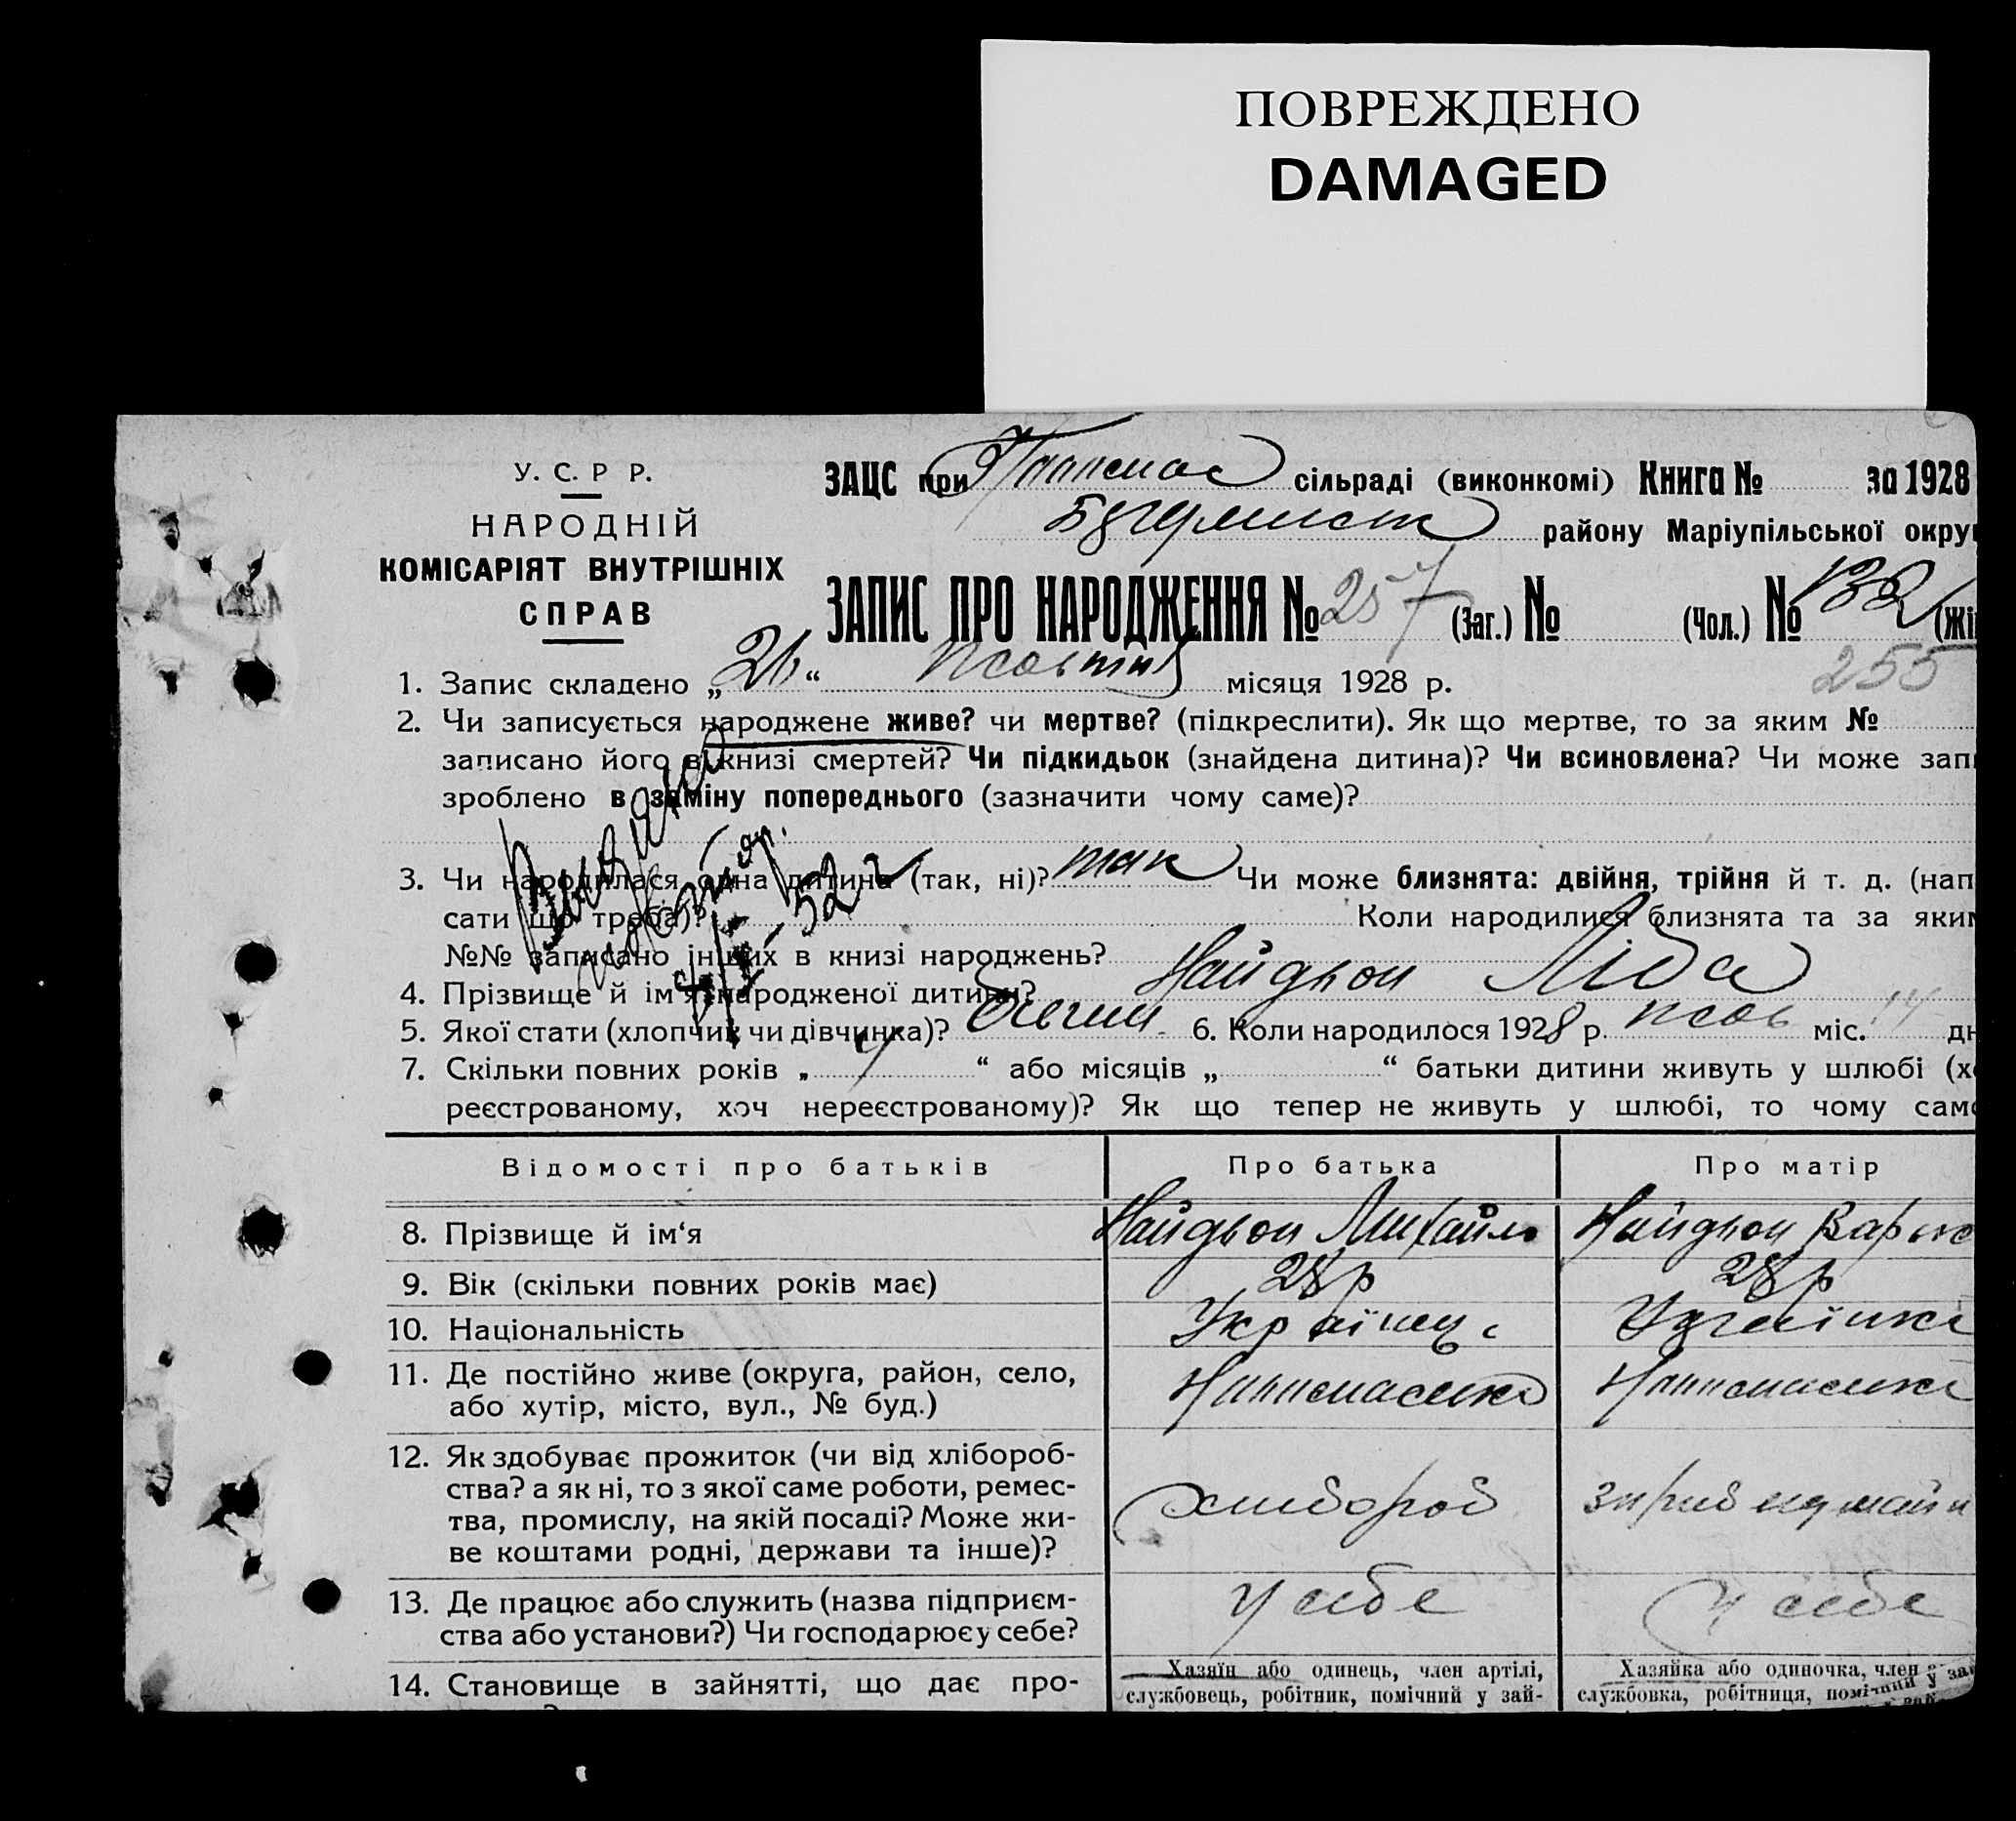 ПОВРЕЖДЕНО
DAMAGED
У. С. Р Р.
НАРОДНІЙ
КОМІСАРІЯТ ВНУТРІШНІХ
СПРАВ
ЗАЦС при сільраді (виконкомі) Книга № за 1928
району Маріупільської округ
ЗАПИС ПРО НАРОДЖЕННЯ № 257 (Заг.) № (Чол.) № 132 (Жі
255
1. Запис складено „26“ жовтня місяця 1928 р.
2. Чи записується народжене живе? чи мертве? (підкреслити). Як що мертве, то за яким №
записано його в книзі смертей? Чи підкидьок (знайдена дитина)? Чи всиновлена? Чи може зап
зроблено в заміну попереднього (зазначити чому саме)?
3. Чи народилася одна дитина (так, ні)? так Чи може близнята: двійня, трійня й т. д. (нап
сати що треба)? Коли народилися близнята та за яким
№№ записано інших в книзі народжень?
4. Прізвище й ім'я народженої дитини? Найдьон Ліда
5. Якої стати (хлопчик чи дівчинка)? 6. Коли народилось 1928 р. жов міс. 14 дн
7. Скільки повних років „ 4 “ або місяців „ “ батьки дитини живуть у шлюбі (х
реєстрованому, хоч нереєстрованому)? Як що тепер не живуть у шлюбі, то чому сам
Відомості про батьків Про батька Про матір
8. Прізвище й ім‘я Найдьон Михайло Найдьон Варька
9. Вік (скільки повних років має) 28 р 28 р
10. Національність Українець Українка
11. Де постійно живе (округа, район, село,
або хутір, місто, вул., № буд.)
12. Як здобуває прожиток (чи від хлібороб-
ства? а як ні, то з якої саме роботи, ремес-
тва, промислу, на якій посаді? Може жи-
ве коштами родні, держави та інше)?
хлібороб
13. Де працює або служить (назва підприєм-
ства або установи?) Чи господарює у себе?
у себе у себе
14. Становище в зайнятті, що дає про-
Хазяїн або одинець, член артілі,
службовець, робітник, помічний у зай-
Хазяйка або одиночка, член
службовка, робітниця, помічний у за